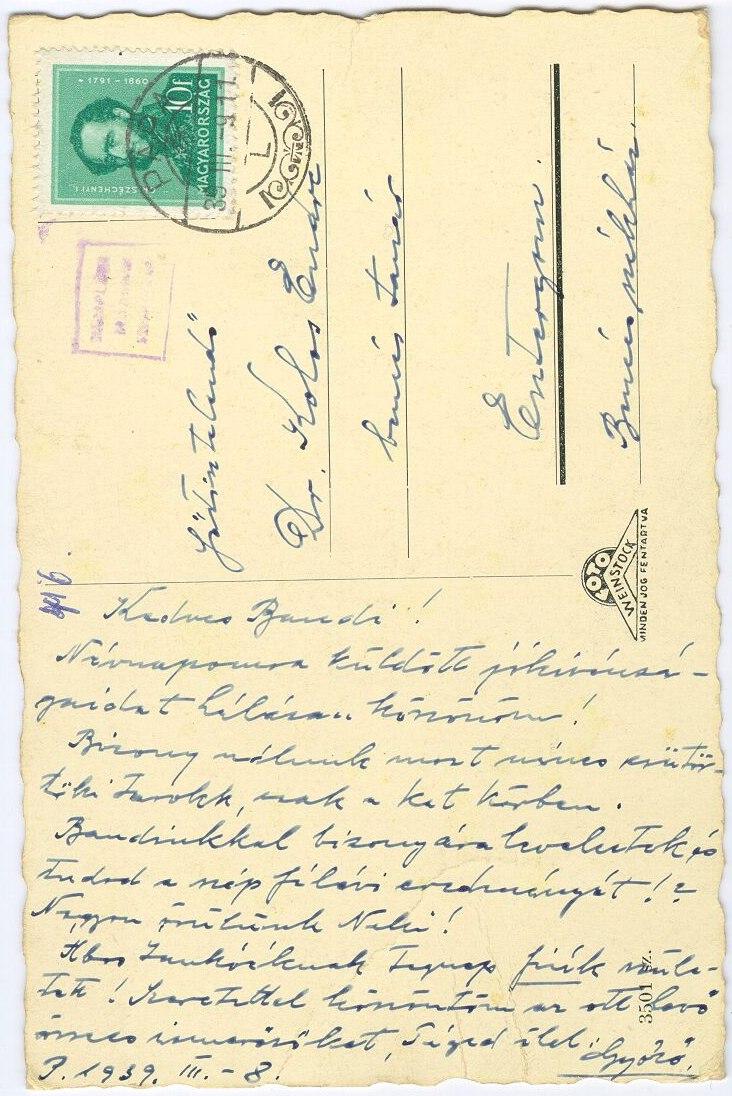 1791 - 1860
10f
MAGYARORSZÁG
SZÉCHENYI I.
Dr. Kolos Endre
bencés tanár
Esztergom.
Bencés székház.
FOTO
WEINSTOCK
MINDEN JOG FENTARTVA
Kedves Bandi!
Névnapomra küldött jókívánsá-
gaidat hálásan köszönöm!
Bizony nálunk most nincs csütör-
töki tarokk, csak a Kat. Körben.
Bandinkkal bizonyára leveleztek és
tudod a szép félévi eredményét!?
Nagyon örülünk Neki!
Jankóéknak tegnap fiúk szüle-
tett! Szeretettel köszöntöm az ott levő
összes ismerősöket, Téged ölel Győző.
P. 1939. III. - 8.
3501 sz.